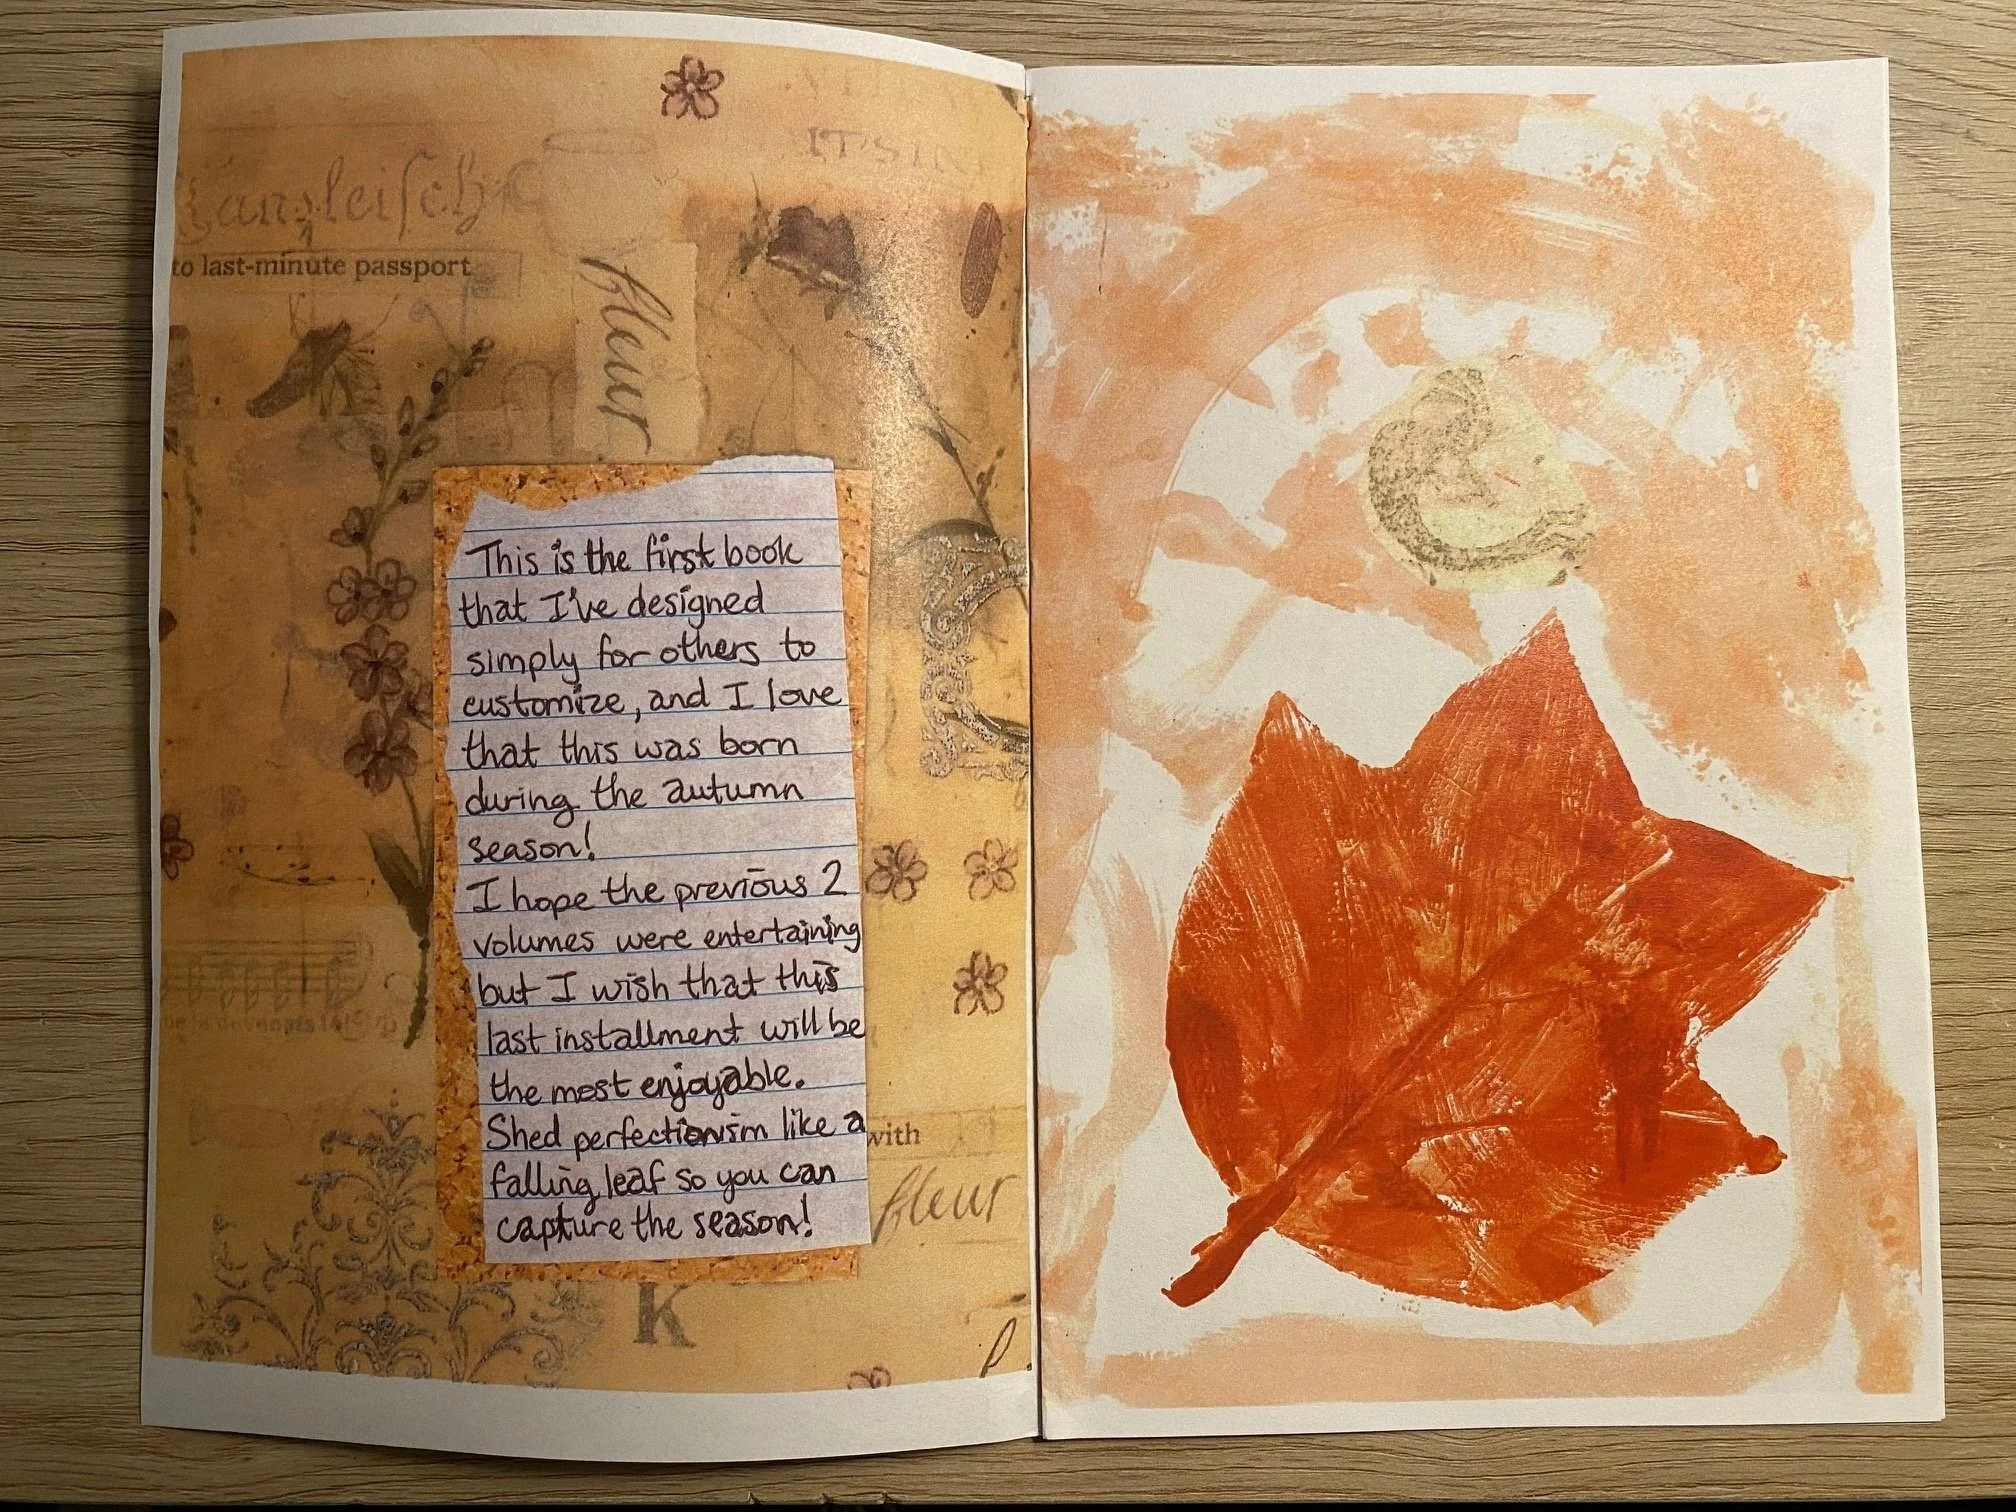 Kanzleisch
to last-minute passport
fleur
This is the first book
that I've designed
simply for others to
customize, and I love
that this was born
during the autumn
season!
I hope the previous 2
volumes were entertaining
but I wish that this
last installment will be
the most enjoyable.
Shed perfectionism like a
falling leaf so you can
capture the season!
with
fleur
K